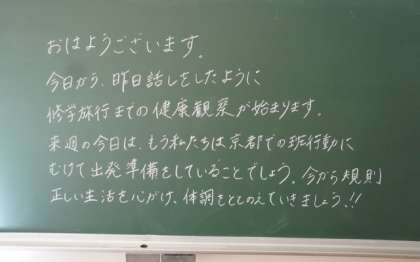 おはようございます。
今日から、昨日話しをしたように
修学旅行までの健康観察が始まります。
来週の今日は、もう私たちは京都での班行動に
むけて出発準備をしていることでしょう。今から規則
正しい生活を心がけ、体調をととのえていきましょう!!